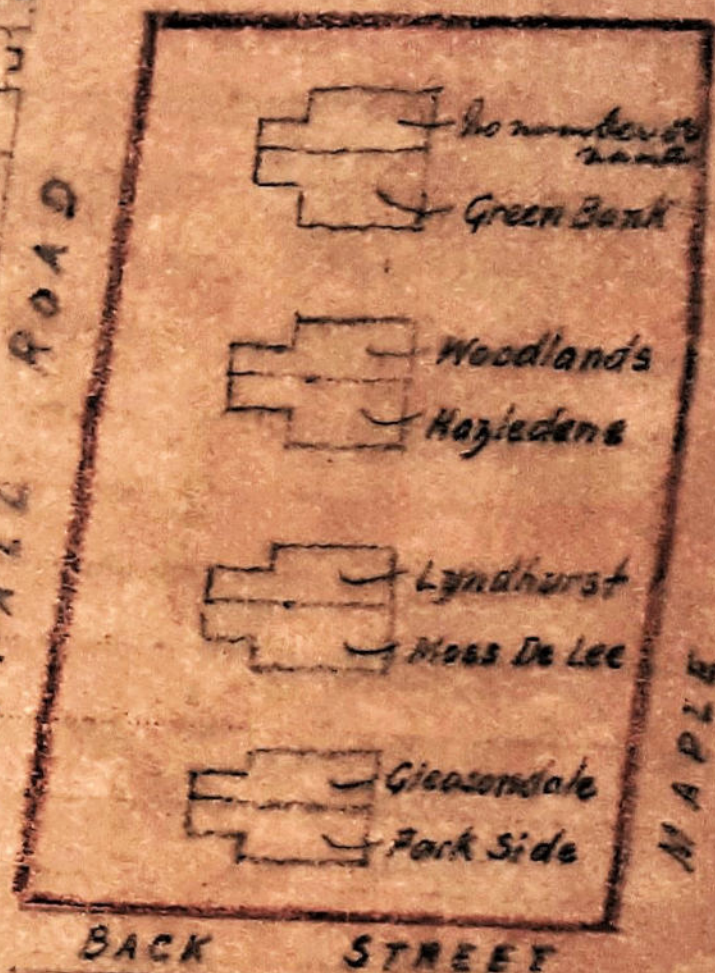 No number or
name
Green Bank
Woodlands
Hazledene
Lyndhurst
Moss De Lee
Gleasondale
Park Side
ROAD
MAPLE
BACK STREET